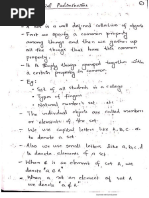 - A set is a well defined collection of objects
- First we specify a common property
among things and then we gather up
all the things that have this common
property.
- It is simply things grouped together with
a certain property in common.
- Eg:
- Set of all students in a college
- Types of fingers
- Natural number's set. etc
- The individual objects are called members
or elements of the set.
- We use capital letters like A, B, C
to denote sets.
- Also we use small letters like a, b, c
to denote elements of a set
- When a is an element of set A, we
denote 'a ∈ A'
When a is not an element of set
A, we denote 'a ∉ A'